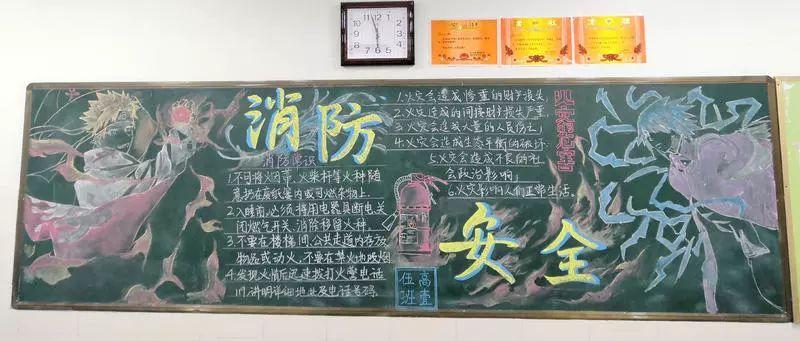 消防
安全
消防常识
1.不可将火苗、火柴杆等火种随
意扔在废纸篓内或可燃杂物上.
2.入睡前,必须将用电器具断电关
闭燃气开关、消除移留火种.
3.不要在楼梯间、公共走道内存放
物品或动火,不要在禁火地吸烟
4.发现火情后迅速拨打火警电话
119.讲明详细地址及电话号码.
1.火灾会造成惨重的财产损失.
2.火灾造成的间接财产损失严重.
3.火灾会造成大量的人员伤亡.
4.火灾会造成生态平衡的破坏.
5.火灾会造成不良的社
会政治影响.
6.火灾影响人们正常生活.
火灾的危害
高壹
伍班